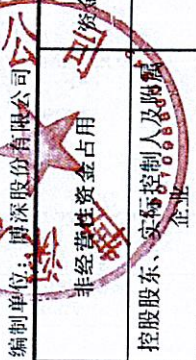 编制单位：博深股份有限公司
非经营性资金占用
资
控股股东、实际控制人及附属
企业